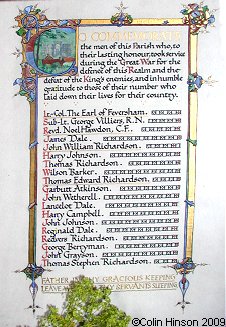 TO COMMEMORATE
the men of this Parish who, to
their lasting honour, took service
during the Great War for the
defence of this Realm and the
defeat of the King's enemies, and in humble
gratitude to those of their number who
laid down their lives for their country.
Lt-Col. The Earl of Feversham.
Sub-Lt. George Villiers, R.N.
Revd. Noel Mawdon, C.F.
James Dale.
John William Richardson.
Harry Johnson.
Thomas Richardson.
Wilson Barker.
Thomas Edward Richardson.
Garbutt Atkinson.
John Wetherell.
Lancelot Dale.
Harry Campbell.
John Johnson.
Reginald Dale.
Redvers Richardson.
George Berryman.
John Grayson.
Thomas Stephen Richardson.
FATHER IN THY GRACIOUS KEEPING
LEAVE WE NOW THY SERVANTS SLEEPING
©Colin Hinson 2009